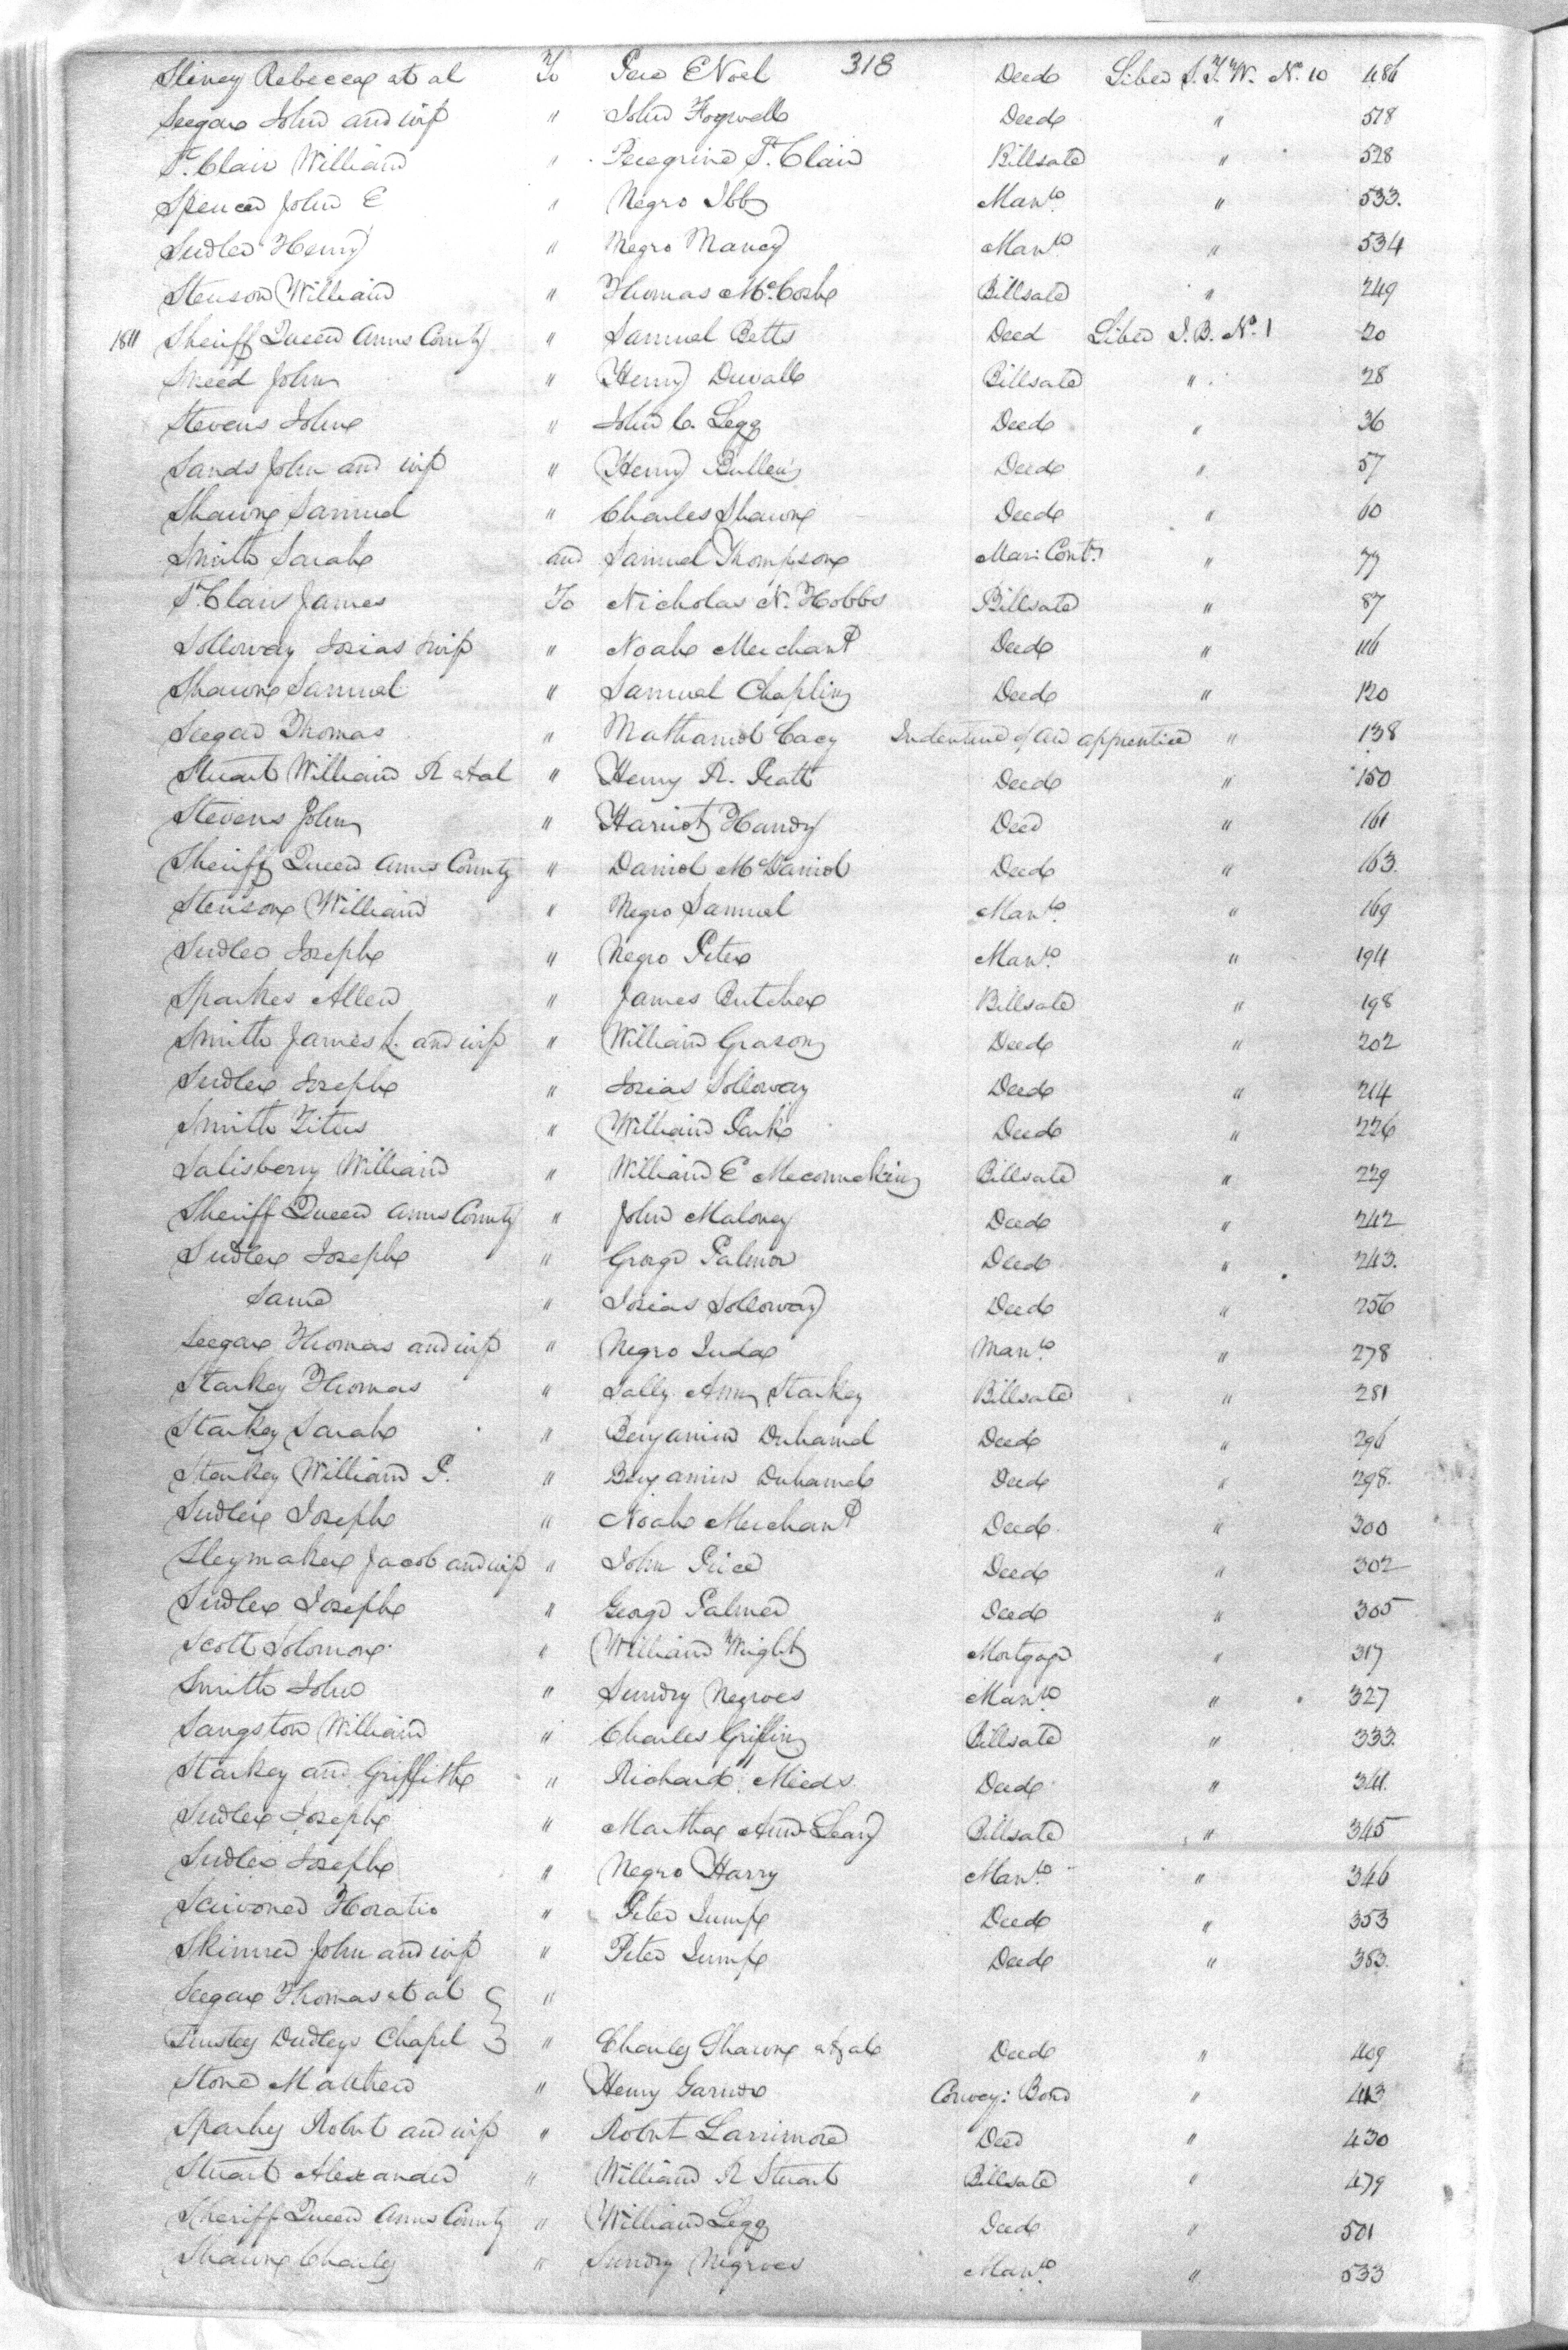 Sliney Rebecca et al To Pere E Noel 318 Deed Liber S.T.W. No. 10 486
Seegar John and wife " John Fogwell Deed " 518
St. Clair William " Peregrine St. Clair Billsale " 528
Spencer John E " Negro Ibby Manto. " 533.
Sudler Henry " Negro Nancy Manto. " 534
Stenson William " Thomas McCosh Billsale " 249
1811 Sheriff Queen Anns County " Samuel Betts Deed Liber J.B. No. 1 20
Sneed John " Henry Duvall Billsale " 28
Stevens John " John C. Legg Deed " 36
Sands John and wife " Henry Bullen Deed " 57
Shawn Samuel " Charles Shawn Deed " 60
Smith Sarah and Samuel Thompson Mar: Contt. " 77
St. Clair James To Nicholas N. Hobbs Billsale " 87
Solloway Josias & wife " Noah Merchant Deed " 116
Shawn Samuel " Samuel Chaplin Deed " 120
Seegar Thomas " Nathaniel Cacy Indenture of an apprentice " 138
Stuart William R et al " Henry R. Pratt Deed " 150
Stevens John " Harriot Handy Deed " 161
Sheriff Queen Anns County " Daniel McDaniel Deed " 163.
Stenson William " Negro Samuel Manto. " 169
Sudler Joseph " Negro Peter Manto. " 194
Sparkes Allen " James Butcher Billsale " 198
Smith James L. and wife " William Grason Deed " 202
Sudler Joseph " Josias Solloway Deed " 214
Smith Titus " William Park Deed " 226
Salisberry William " William E Meconnekin Billsale " 229
Sheriff Queen Anns County " John Maloney Deed " 242
Sudler Joseph " George Palmer Deed " 243.
Same " Josias Solloway Deed " 256
Seegar Thomas and wife " Negro Juda Manto. " 278
Starkey Thomas " Sally Ann Starkey Billsale " 281
Starkey Sarah " Benjamin Duhamel Deed " 296
Starkey William P. " Benjamin Duhamel Deed " 298.
Sudler Joseph " Noah Merchant Deed " 300
Sleymaker Jacob and wife " John Price Deed " 302
Sudler Joseph " George Palmer Deed " 305
Scott Solomon " William Wright Mortgage " 317
Smith John " Sundry Negroes Manto. " 327
Sangston William " Charles Griffin Billsale " 333.
Starkey and Griffith " Richard Meeds Deed " 341.
Sudler Joseph " Martha Ann Leary Billsale " 345
Sudler Joseph " Negro Harry Manto. " 346
Horatio " Peter Jump Deed " 353
Skinner John and wife " Peter Jump Deed " 383.
Seegar Thomas et al "
Trustey Dudleys Chapel " Charles Shawn et al Deed " 409
Stone Matthew " Henry Garner Convey: Bond " 413
Sparkes Robert and wife " Robert Larrimore Deed " 430
Stuart Alexander " William R Stuart Billsale " 479
Sheriff Queen Anns County " William Legg Deed " 501
Shawn Charles " Sundry Negroes Manto. " 533